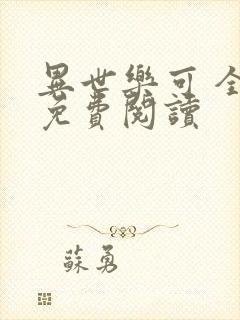 異世樂可全
免費閱讀
蘇勇